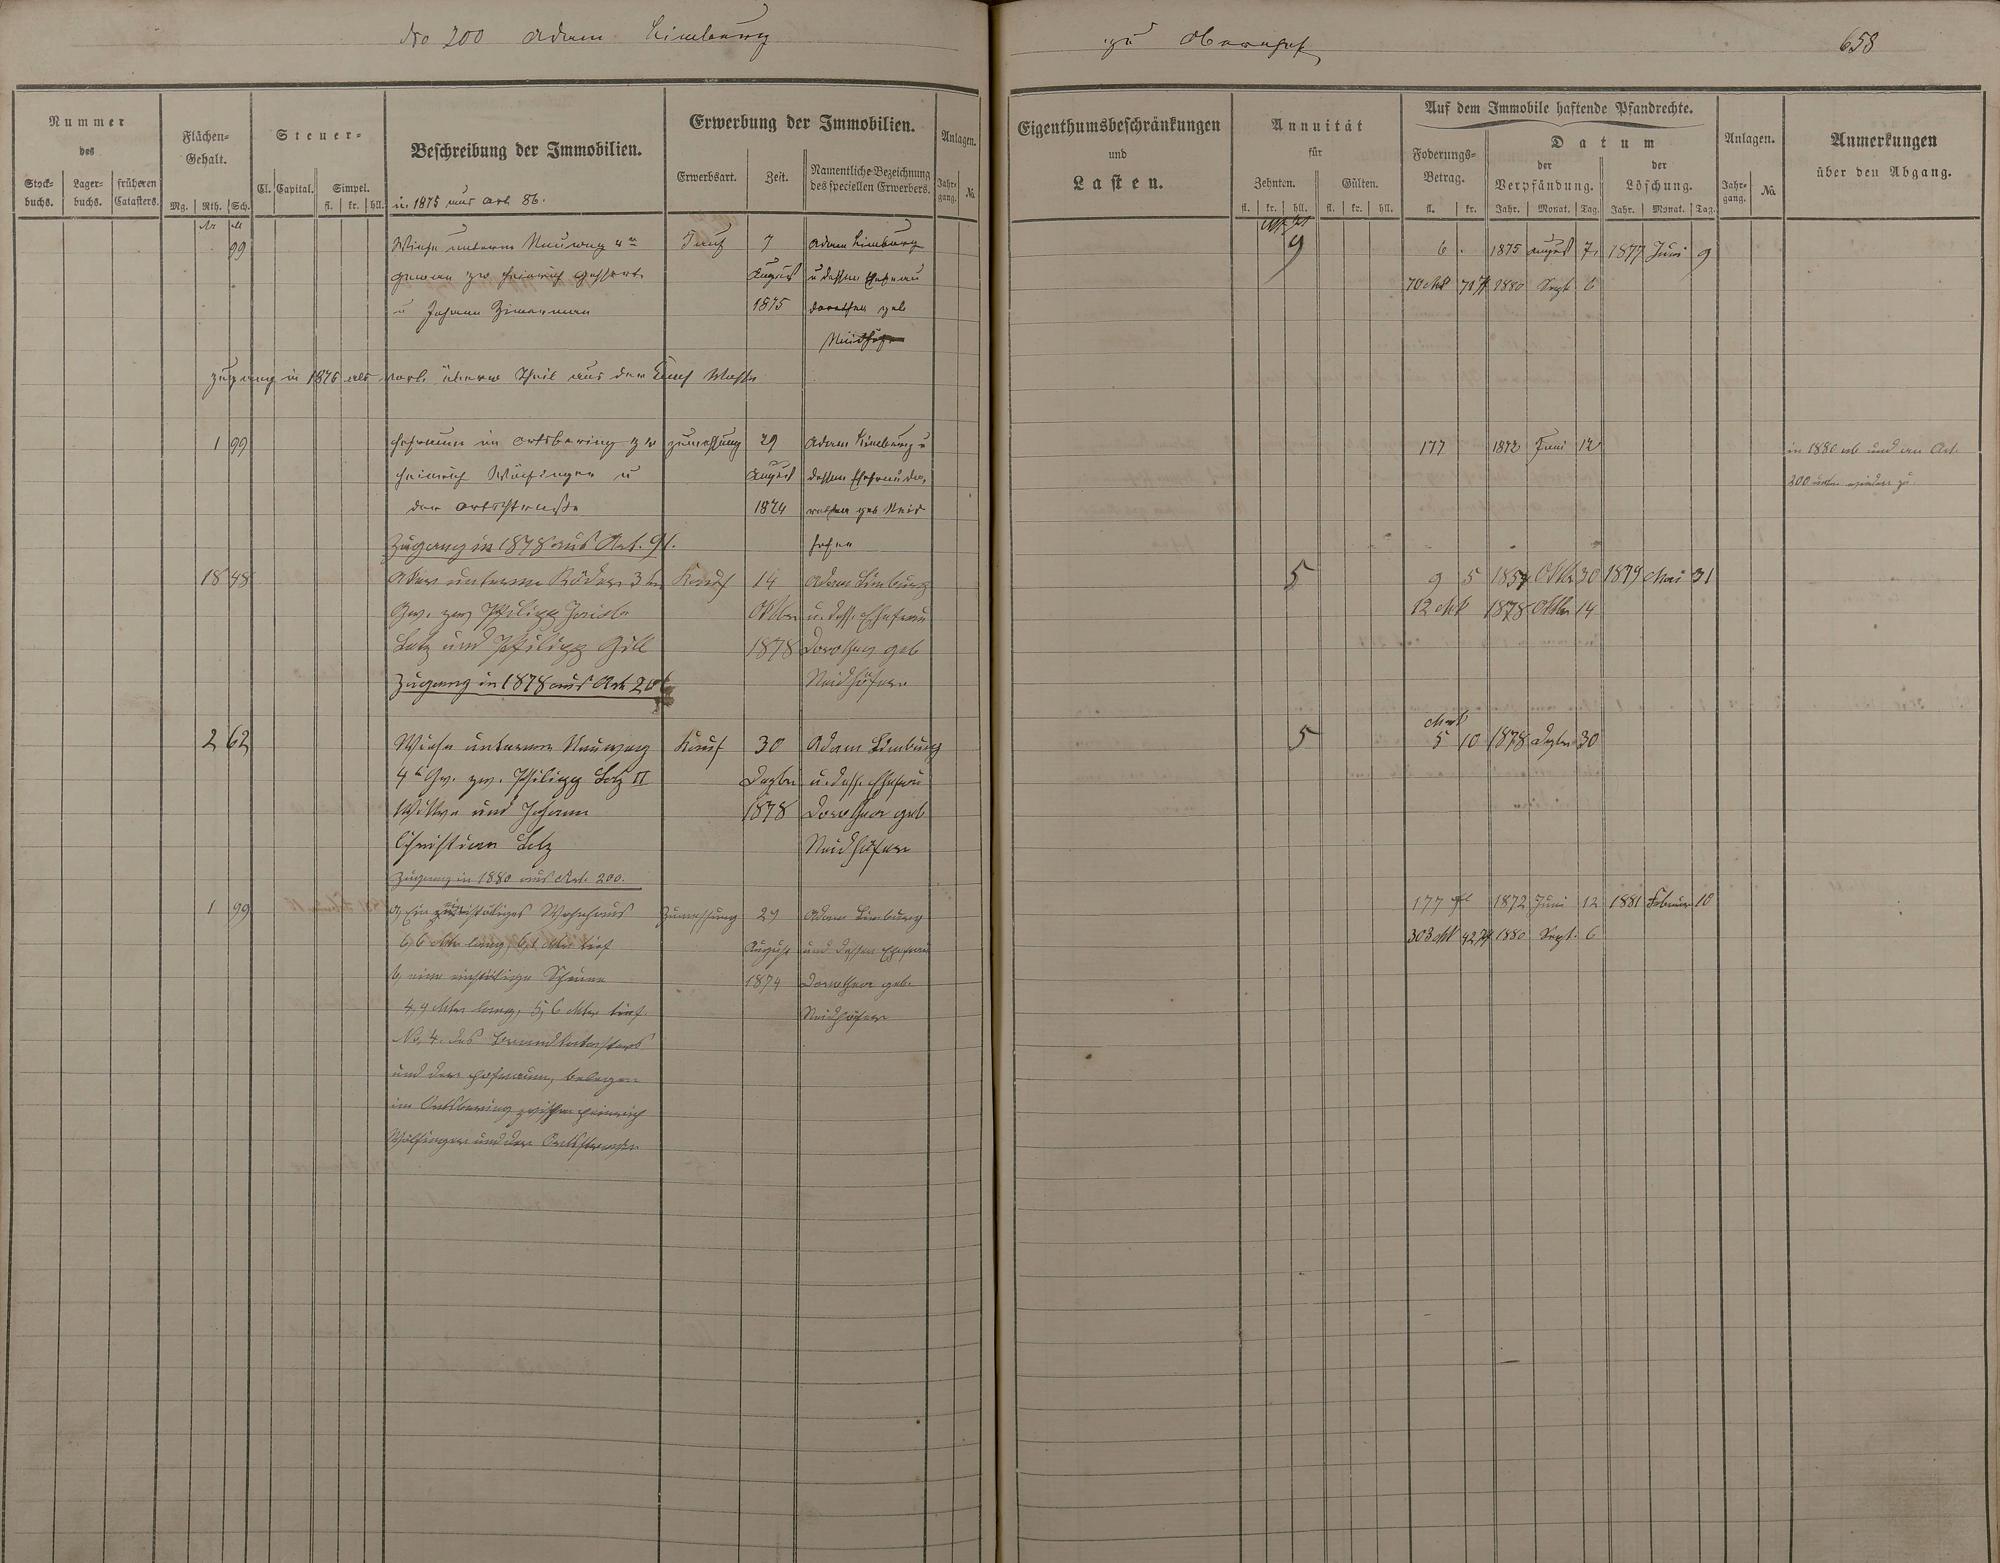 No 200 Adam Limburg
zu Obernhof 658
Nummer
des
Stock-
buchs.
Lager-
buchs.
früheren
Catasters.
Flächen-
Gehalt.
Mg. Rth. Sch.
Steuer-
Cl. Capital. Simpel.
fl. kr. hll.
Beschreibung der Immobilien.
in 1875 aus Art. 86.
Erwerbung der Immobilien.
Erwerbsart. Zeit.
Namentliche Bezeichnung
des speciellen Erwerbers.
Anlagen.
Jahr-
gang. No.
Eigenthumsbeschränkungen
und
Lasten.
Annuität
für
Zehnten. Gülten.
fl. kr. hll. fl. kr. hll.
Auf dem Immobile haftende Pfandrechte.
Foderungs-
Betrag.
fl. kr.
Datum
der
Verpfändung.
der
Löschung.
Jahr. Monat. Tag. Jahr. Monat. Tag.
Anlagen.
Jahr-
gang. No.
Anmerkungen
über den Abgang.
99 Wiese unterm Neuweg 4r Kauf 7 Adam Limburg 9 6 1875 August 7 1877 Juni 9
Gewann zw Heinrich August u dessen Ehefrau 70 Mk 71 Pf 1880 Sept 6
u Johann Zimmermann 1875 Dorothea geb
Zugang in 1876 als Theil aus der Masse
1 99 Hofraum im Ortsbering zw Zumessung 29 Adam Limburg u 177 1872 Juni 12 in 1880 ab und an Art.
Heinrich Wölfinger u August dessen Ehefrau Do- 200 unten wieder zu
der Ortsstraße 1874 rothea geb Neid
Zugang in 1878 aus Art. 91. höfer
18 48 Acker unterm 3te Kauf 14 Adam Limburg 5 9 5 1857 Oktbr 30 1879 Mai 31
Gw. zw Philipp Jacob Oktbr u. dess. Ehefrau 12 Mk 1878 Oktbr 14
Lotz und Philipp Gill 1878 Dorothea geb
Zugang in 1878 aus Art 20 Neidhöfer
2 62 Wiese unterm Neuweg Kauf 30 Adam Limburg 5 Mark 5 10 1878 Dezbr 30
4r Gw. zw. Philipp Lotz II Dezbr u. dess. Ehefrau
Wittwe und Johann 1878 Dorothea geb
Christian Lotz Neidhöfer
Zugang in 1880 aus Art. 200.
1 99 a, Ein zweistöckiges Wohnhaus Zumessung 29 Adam Limburg 177 fl 1872 Juni 12 1881 Februar 10
6,6 Mtr lang, 6,1 Mtr tief August und dessen Ehefrau 303 Mk 42 Pf 1880 Sept. 6
b, eine einstöckige Scheune 1874 Dorothea geb.
4,4 Mtr lang, 5,6 Mtr tief. Neidhöfer
No. 4. des Brandkatasters
und der Hofraum, belegen
im Ortsbering zwischen Heinrich
Wölfinger und der Ortsstraße